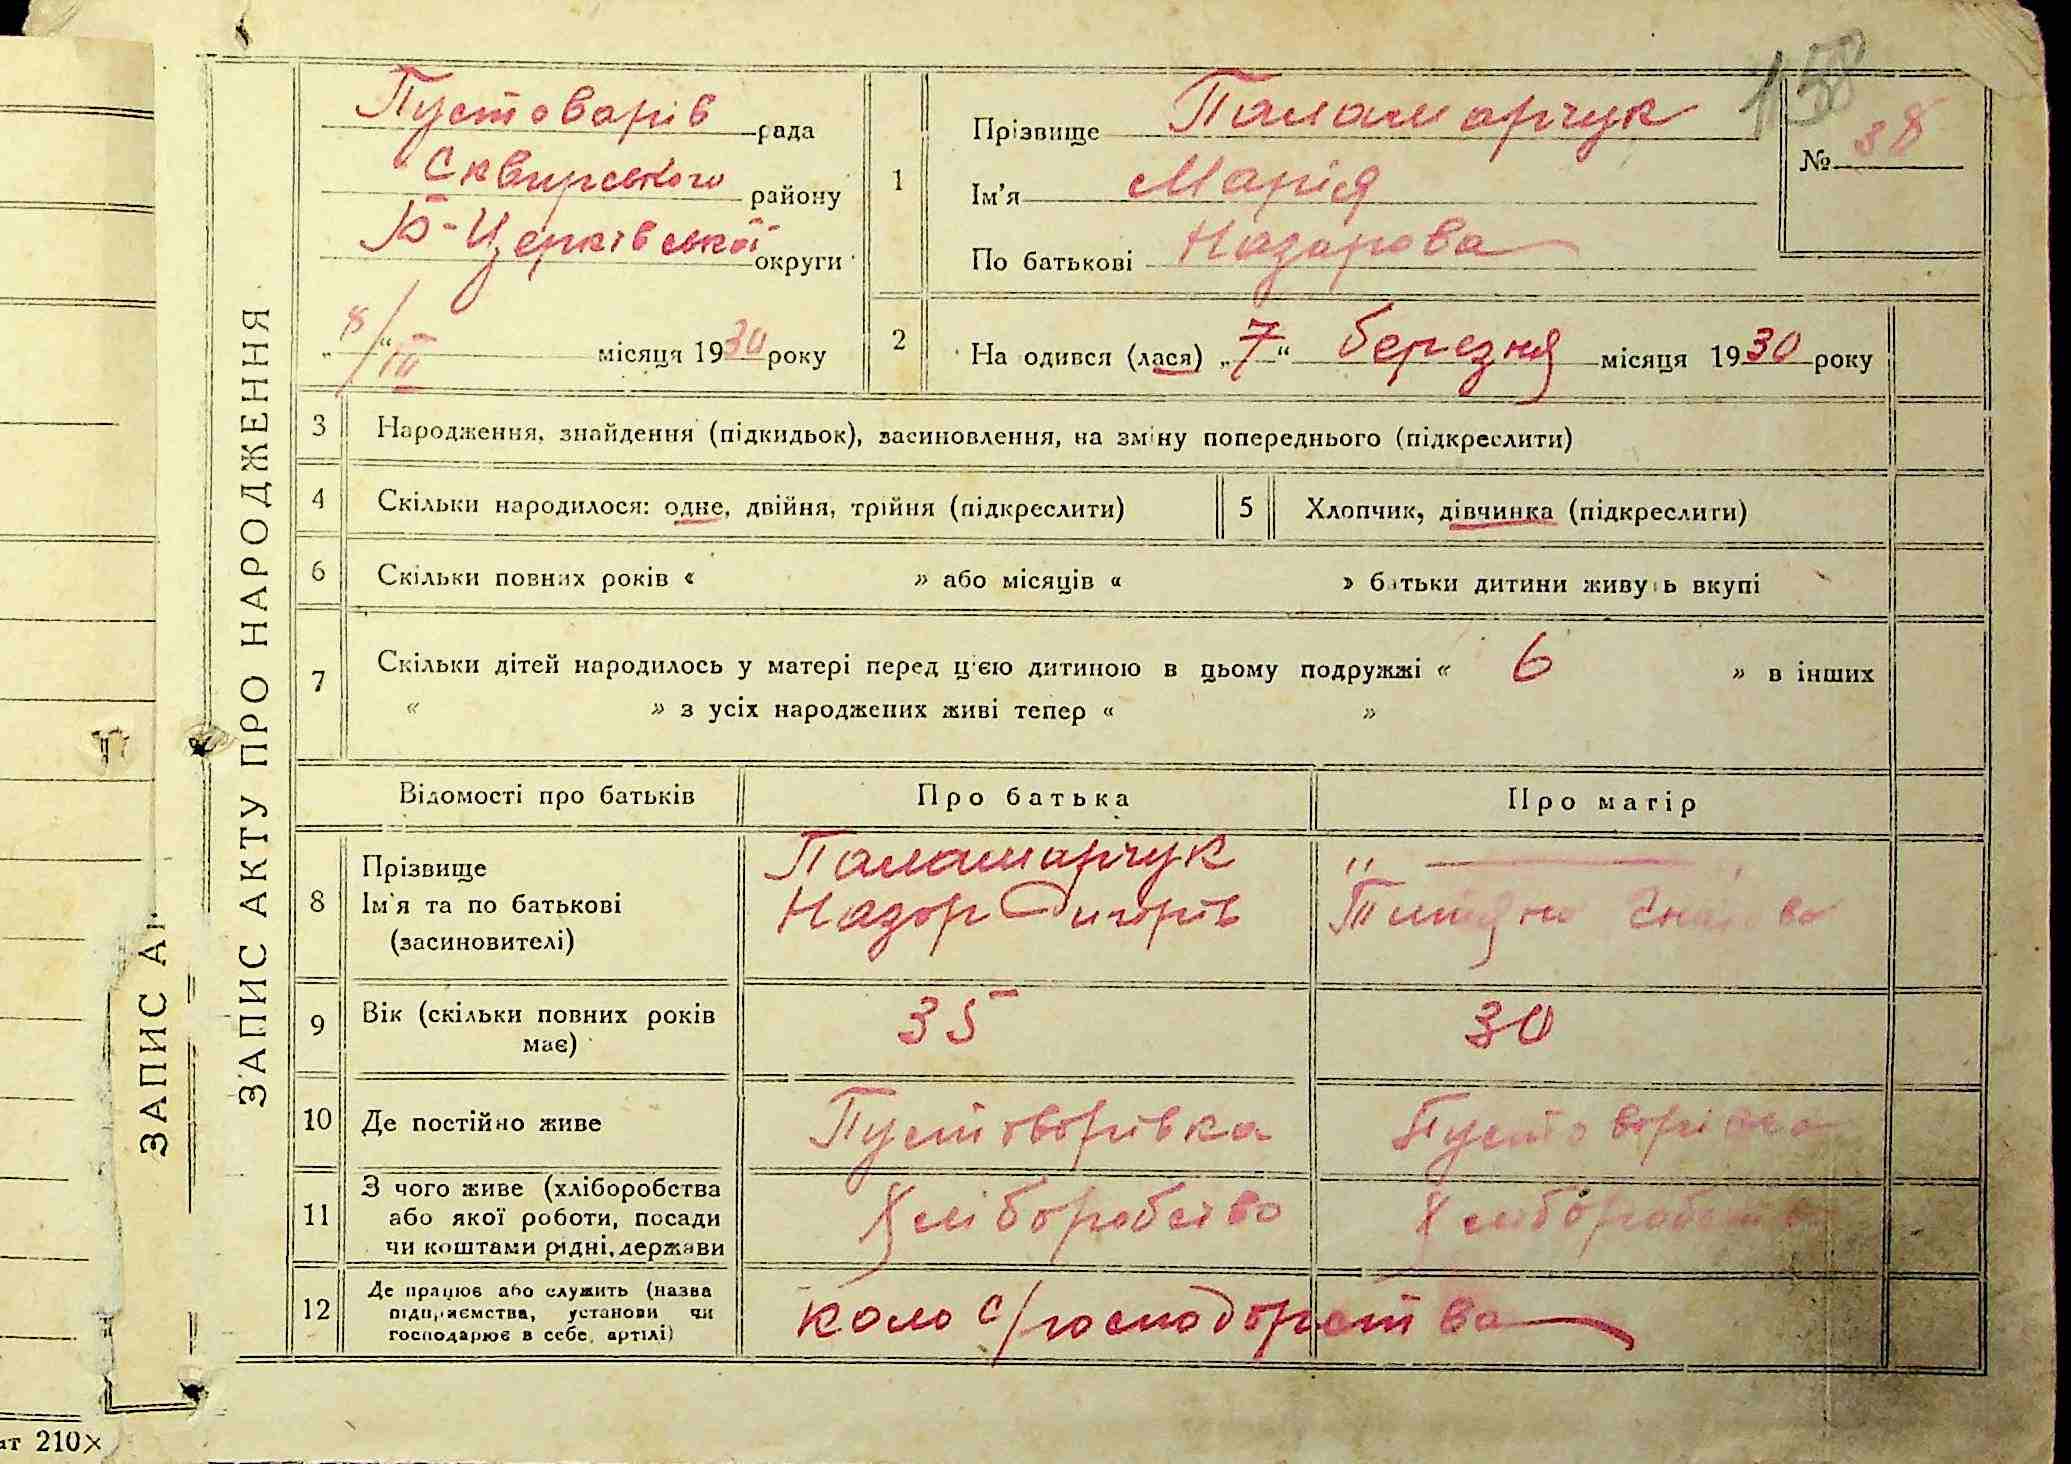 158
Пустоварів рада
Сквирського району
Б-Церківської округи
„8/III“ місяця 1930 року
1
Прізвище Паламарчук
Ім'я Марія
По батькові Назарова
№ 38
2
На одився (лася) „7“ березня місяця 1930 року
ЗАПИС АКТУ ПРО НАРОДЖЕННЯ
3 Народження, знайдення (підкидьок), засиновлення, на зміну попереднього (підкреслити)
4 Скільки народилося: одне, двійня, трійня (підкреслити)
5 Хлопчик, дівчинка (підкреслити)
6 Скільки повних років « » або місяців « » батьки дитини живуть вкупі
7 Скільки дітей народилось у матері перед цією дитиною в цьому подружжі « 6 » в інших
« » з усіх народжених живі тепер « »
Відомості про батьків
Про батька
Про матір
8 Прізвище
Ім'я та по батькові
(засиновителі)
Паламарчук
Назар Григорів
"
Титяна
9 Вік (скільки повних років
має)
35
30
10 Де постійно живе
Пустоварівка
Пустоварівка
11 З чого живе (хліборобства
або якої роботи, посади
чи коштами рідні, держави
Хліборобство
Хліборобство
12 Де працює або служить (назва
підприємства, установи чи
господарює в себе, артілі)
коло с/господарства
ЗАПИС А
ат 210×